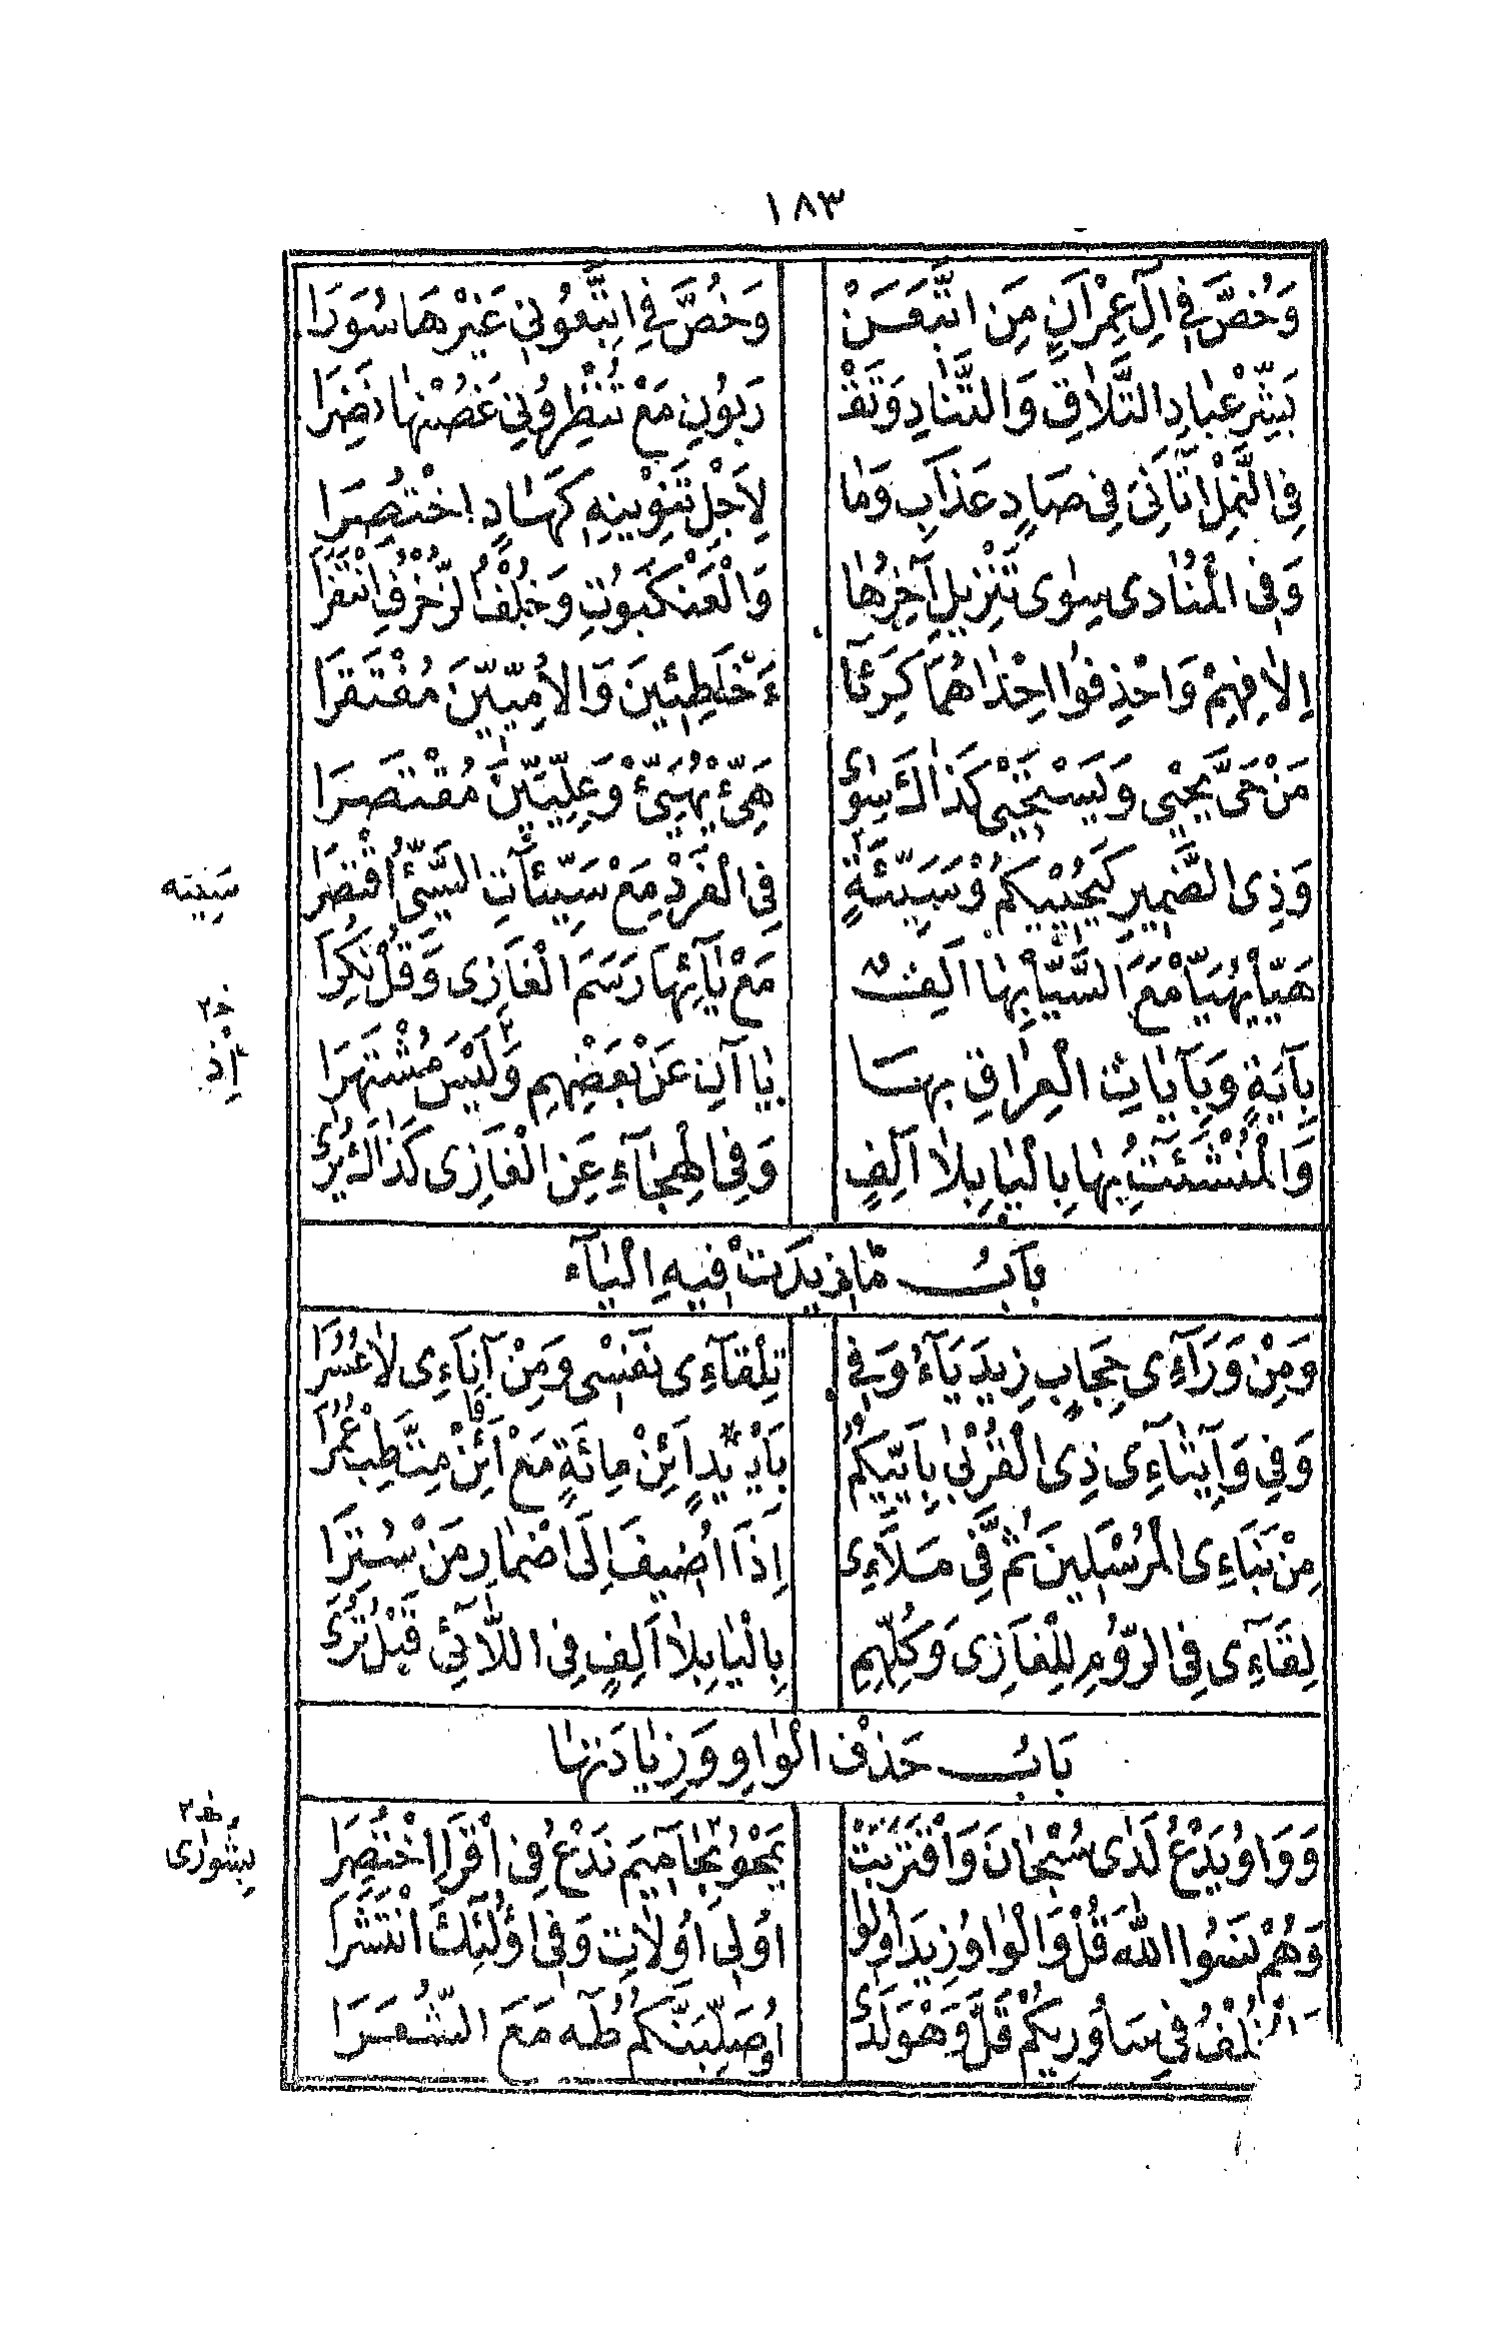 ١٨٣
وَخُصَّ فِي اٰلِ عِمْرَانٍ مَنِ اتَّبَعَنْ وَخُصَّ فِي اتَّبِعُونِي غَيْرَهَا سُوَرَا
بَشِّرْ عِبَادِ التَّلَاقِ وَالتَّنَادِ وَتَقْ رَبُونِ مَعْ تُنْظِرُونِي غُصْنُهَا نَضِرَا
فِي النَّمْلِ اٰتَانِيَ فِي صَادٍ عَذَابِ وَمَا لِاَجْلِ تَنْوِينِهِ كَهَادٍ اخْتُصِرَا
وَفِي الْمُنَادٰى سِوٰى تَنْزِيلِ آخِرُهَا وَالْعَنْكَبُوتِ وَخُلْفُ الزُّخْرُفِ انْتَقَرَا
اِلَافِهِمْ وَاحْذِفُوا اِحْدَاهُمَا كَرِئَآ ءَ خَاطِئِينَ وَالْاُمِّيّينَ مُقْتَفِرَا
مَنْ حَىَّ يُحْيِى وَيَسْتَحْيِى كَذَاكَ سِوٰى هَيِّئْ يُهَيِّئْ وَعِلِّيِّينَ مُقْتَصَرَا
وَذِى الضَّمِيرِ كَيُحْيِيكُمْ وَسَيِّئَةٍ فِى الْفَرْدِ مَعْ سَيِّئَآتِ السَّيِّئُ اقْتُصِرَا
سَيِّئِه
هَيَّأْ يُهَيَّأْ مَعَ السَّيَّأْ بِهَا اَلِفٌ مَعْ يَآئِهَا رَسَمَ الْغَازِى وَقَدْ نُكِرَا
خـ٢
بِآيَةٍ وَبِآيَاتِ الْعِرَاقِ بِهَا يَا آنِ عَنْ بَعْضِهِمْ وَلَيْسَ مُشْتَهَرَا
اِذْ
وَالْمُنْشَئَتُ بِهَا بِالْيَا بِلَا اَلِفٍ وَفِى الْهِجَآءِ عَنِ الْغَازِى كَذَاكَ يُرٰى
بَابُ مَا زِيدَتْ فِيهِ الْيَآء
وَمِنْ وَرَآءِى حِجَابٍ زِيدَ يَآءُ وَفِي تِلْقَآءِى نَفْسِى وَمِنْ آنَاءِى لَا عُسُرَا
وَفِي وَاِيتَآءِى ذِى الْقُرْبٰى بِاَيِّيكُمُ بِاَيْيدٍ اَئِنْ مِائَةٍ مَعْ اَئِنْ مِتَّ طِبْ عُمُرَا
مِنْ نَبَاءِى الْمُرْسَلِينَ ثُمَّ فِي مَلَآءِى اِذَا اُضِيفَ اِلَى اضْمَارِ مَنْ سُتِرَا
لِقَآءِى فِى الرُّومِ لِلْغَازِى وَكُلِّهِمِ بِالْيَا بِلَا اَلِفٍ فِى اللَّآئِى قَبْلُ تُرٰى
بَابُ حَذْفِ الْوَاوِ وَزِيَادَتِهَا
وَوَاوُ يَدْعُ لَدٰى سُبْحَانَ وَاقْتَرَبَتْ يَمْحُو بِحَامِيمَ نَدْعُ فِى اقْرَاِ اخْتُصِرَا
خـ٢
بِشُورٰى
وَهُمْ نَسُوا اللّٰهَ قُلْ وَالْوَاوُ زِيدَ اُولُوا اُولِى اُولَاتِ وَفِى اُولٰئِكَ انْتَشَرَا
وَالْخُلْفُ فِي سَاُورِيكُمْ قَلَّ وَهْوَ لَدٰى اُوصَلِّبَنَّكُمُ طٰهٰ مَعَ الشُّعَرَا